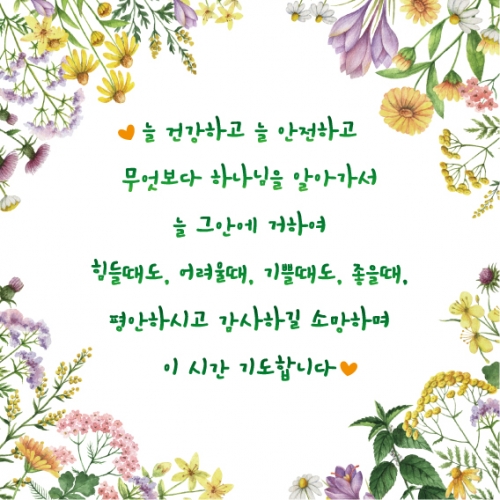 늘 건강하고 늘 안전하고
무엇보다 하나님을 알아가서
늘 그안에 거하여
힘들때도, 어려울때, 기쁠때도, 좋을때,
평안하시고 감사하길 소망하며
이 시간 기도합니다